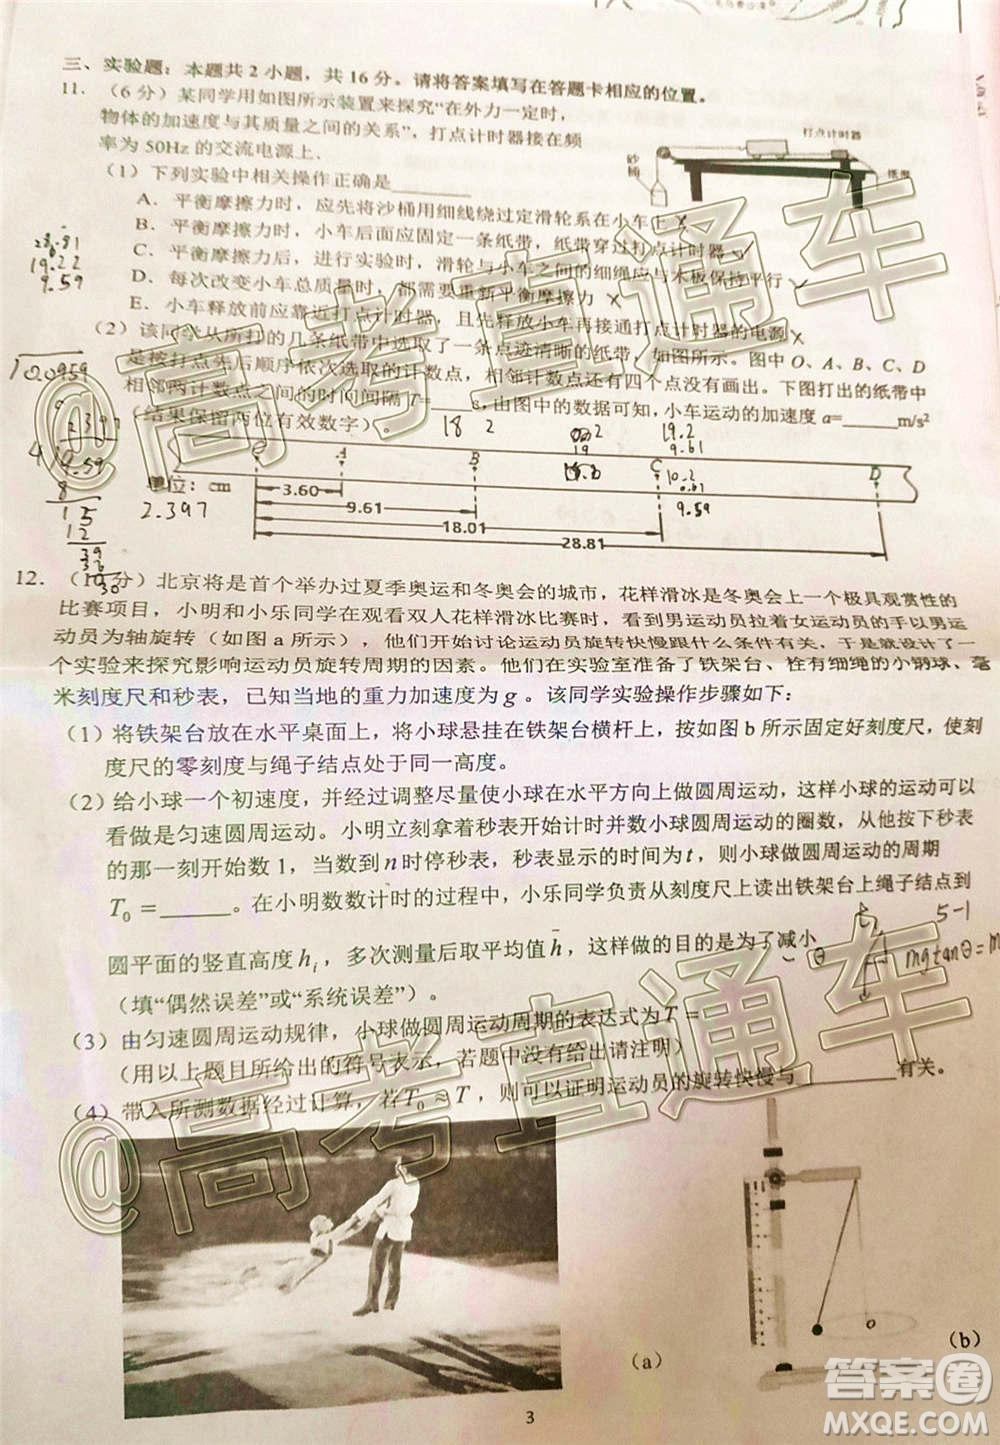 三、实验题：本题共2小题，共16分。请将答案填写在答题卡相应的位置。
11．（6分）某同学用如图所示装置来探究“在外力一定时，
物体的加速度与其质量之间的关系”，打点计时器接在频
率为50Hz的交流电源上．
打点计时器
砂
桶
纸带
（1）下列实验中相关操作正确是________
A．平衡摩擦力时，应先将沙桶用细线绕过定滑轮系在小车上 ×
B．平衡摩擦力时，小车后面应固定一条纸带，纸带穿过打点计时器 ✓
C．平衡摩擦力后，进行实验时，滑轮与小车间的细绳应与木板保持平行 ✓
D．每次改变小车总质量时，都需要重新平衡摩擦力 ×
E．小车释放前应靠近打点计时器，且先释放小车再接通打点计时器的电源 ×
28.81
19.22
9.59
（2）该同学从所打的几条纸带中选取了一条点迹清晰的纸带，如图所示。图中O、A、B、C、D
是按打点先后顺序依次选取的计数点，相邻计数点还有四个点没有画出。下图打出的纸带中
相邻两计数点之间的时间间隔T=____s,由图中的数据可知，小车运动的加速度a=_____m/s²
（结果保留两位有效数字）。
18 2
19.2
9.61
10.2
9.59
2.397
O A B C D
单位：cm
3.60
9.61
18.01
28.81
12．（10分）北京将是首个举办过夏季奥运和冬奥会的城市，花样滑冰是冬奥会上一个极具观赏性的
比赛项目，小明和小乐同学在观看双人花样滑冰比赛时，看到男运动员拉着女运动员的手以男运
动员为轴旋转（如图a所示），他们开始讨论运动员旋转快慢跟什么条件有关，于是就设计了一
个实验来探究影响运动员旋转周期的因素。他们在实验室准备了铁架台、栓有细绳的小钢球、毫
米刻度尺和秒表，已知当地的重力加速度为g。该同学实验操作步骤如下：
（1）将铁架台放在水平桌面上，将小球悬挂在铁架台横杆上，按如图b所示固定好刻度尺，使刻
度尺的零刻度与绳子结点处于同一高度。
（2）给小球一个初速度，并经过调整尽量使小球在水平方向上做圆周运动，从他按下秒表
看做是匀速圆周运动。小明立刻拿着秒表开始计时并数小球圆周运动的圈数，
的那一刻开始数1，当数到n时停秒表，秒表显示的时间为t，则小球做圆周运动的周期
T₀=_____。在小明数数计时的过程中，小乐同学负责从刻度尺上读出铁架台上绳子结点到
圆平面的竖直高度hᵢ，多次测量后取平均值h̄，这样做的目的是为了减小
（填“偶然误差”或“系统误差”）。
θ
n-1
mgtanθ=m
（3）由匀速圆周运动规律，小球做圆周运动周期的表达式为T=
（用以上题目所给出的符号表示，若题中没有给出请注明）
（4）带入所测数据经过计算，若T₀≈T，则可以证明运动员的旋转快慢与_______有关。
o
(a)
(b)
3
@高考直通车
@高考直通车
答案圈
MXQE.COM